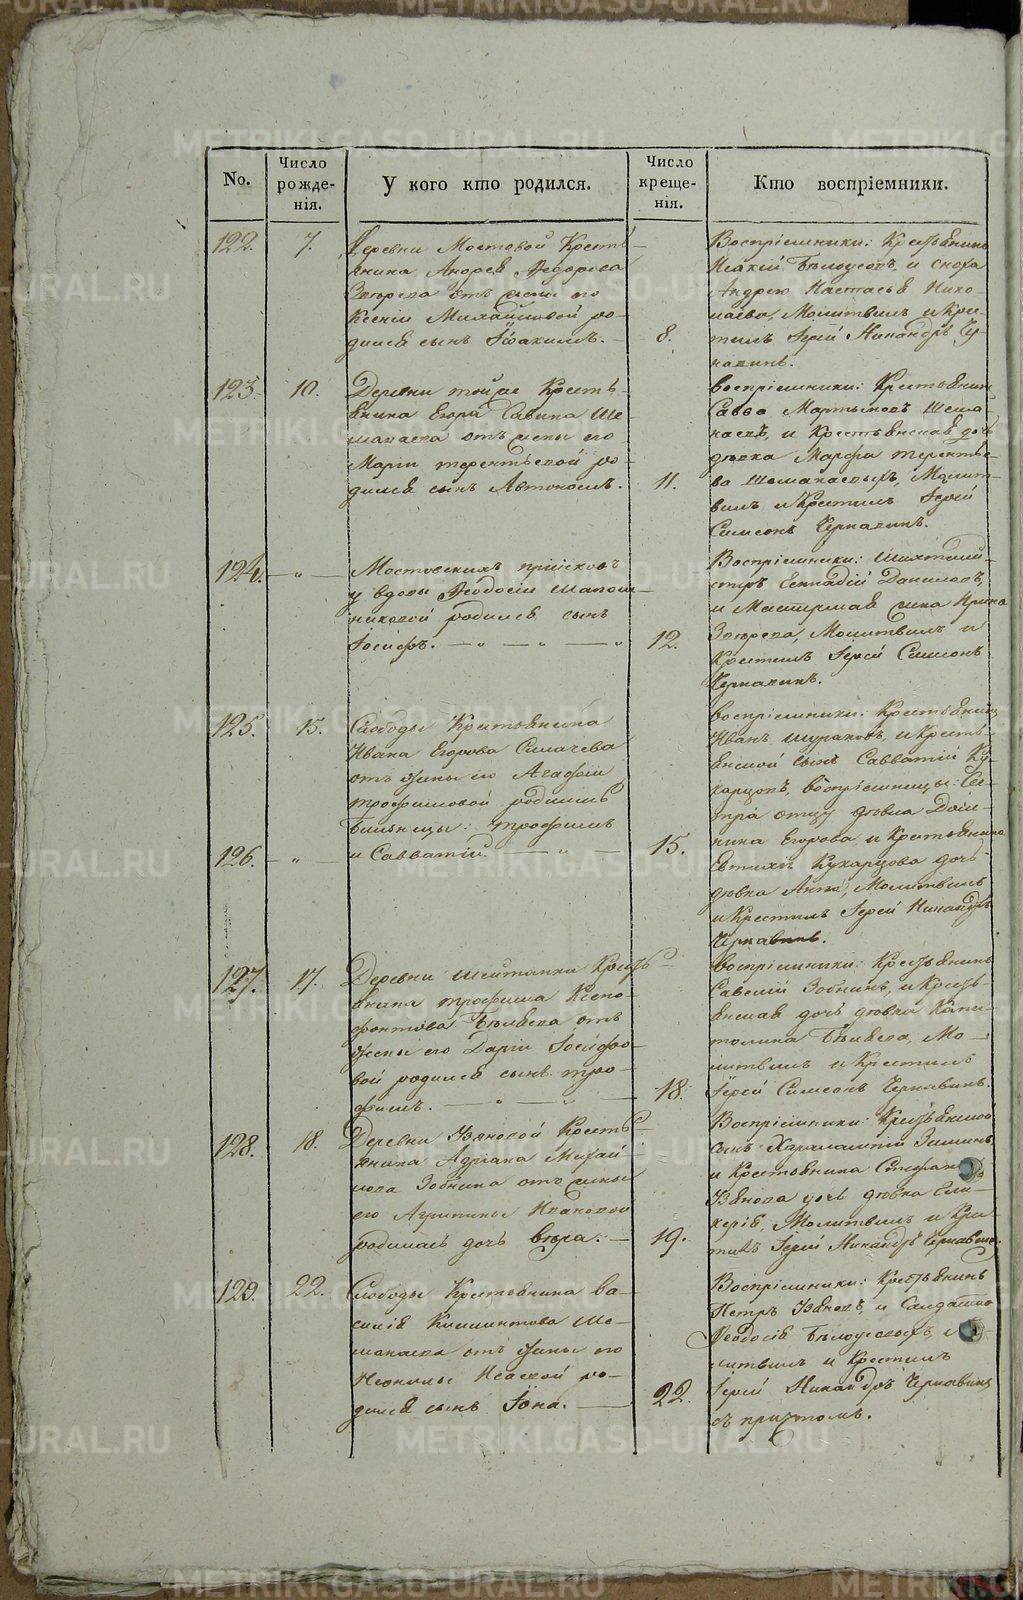 No.
Число рожде-
нія.
У кого кто родился.
Число креще-
нія.
Кто воспріемники.
122. 7.
Деревни Мостовой Кресть-
янина Андрея Федорова
Звѣрева отъ жены его
Ксеніи Михайловой ро-
дился сынъ Іоакимъ.
8.
Воспріемники: Крестьянинъ
Исакій Бѣлоусовъ, и сноха
Андрею Настасья Нико-
лаева, Молитвилъ и Кре-
стилъ Іерей Никандръ Чер-
навинъ.
123. 10.
Деревни тойже Кресть-
янина Егора Савина Ше-
манаева отъ жены его
Маріи терентьевой ро-
дился сынъ Автономъ.
11.
воспріемники: Крестьянинъ
Савва Мартыновъ Шема-
наевъ, и Крестьянская дочь
дѣвка Марфа терентье-
ва Шеманаевыхъ, Молит-
вилъ и Крестилъ Іерей
Симеонъ Чернавинъ.
124. — „ —
Мостовскихъ пріисковъ
у вдовы Феодосіи
никовой родился сынъ
Іосифъ. — „ — „ — „
12.
Воспріемники:
Геннадій Даниловъ,
и жена Ирина
Звѣрева, Молитвилъ и
Крестилъ Іерей Симеонъ
Чернавинъ.
125. 15.
Слободы Крестьянина
Ивана Егорова Симачева
отъ жены его Агафіи
трофимовой родились
близнецы: трофимъ
126. — „ —
и Савватій. — „ —
15.
воспріемники: Крестьянинъ
Иванъ и Кресть-
янской сынъ Савватій Ку-
харцовъ, воспріемницы: Се-
стра отцу дѣвка Дом-
нина Егорова, и Крестьянина
Евтихія Кухарцова дочь
дѣвка Анна, Молитвилъ
и Крестилъ Іерей Никандръ
Чернавинъ.
127. 17.
Деревни Шайтанки Кресть-
янина трофима Ксено-
фонтова Бѣляева отъ
жены его Даріи Іосифо-
вой родился сынъ тро-
фимъ. — „ — „ —
18.
воспріемники: Крестьянинъ
Савелій Зобнинъ, и Кресть-
янская дочь дѣвка Капи-
толина Бѣляева, Мо-
литвилъ и Крестилъ
Іерей Симеонъ Чернавинъ.
128. 18.
Деревни Ваковой Кресть-
янина Адріана Михай-
лова Зобнина отъ жены
его Агрипины Ивановой
родилась дочь Вѣра. —
19.
Воспріемники: Крестьянской
сынъ Харлампій Зиминъ,
и Крестьянина Стефана
дочь дѣвка Гли-
керія, Молитвилъ и Кре-
стилъ Іерей Никандръ Чернавинъ.
129. 22.
Слободы Крестьянина Ва-
силія Климентова Ше-
манаева отъ жены его
Неонилы Исаевой ро-
дился сынъ Іона. —
22.
Воспріемники: Крестьянинъ
Петръ и Салдатка
Феодосія Бѣлоусовыхъ, Мо-
литвилъ и Крестилъ
Іерей Никандръ Чернавинъ
съ причтомъ.
METRIKI.GASO-URAL.RU